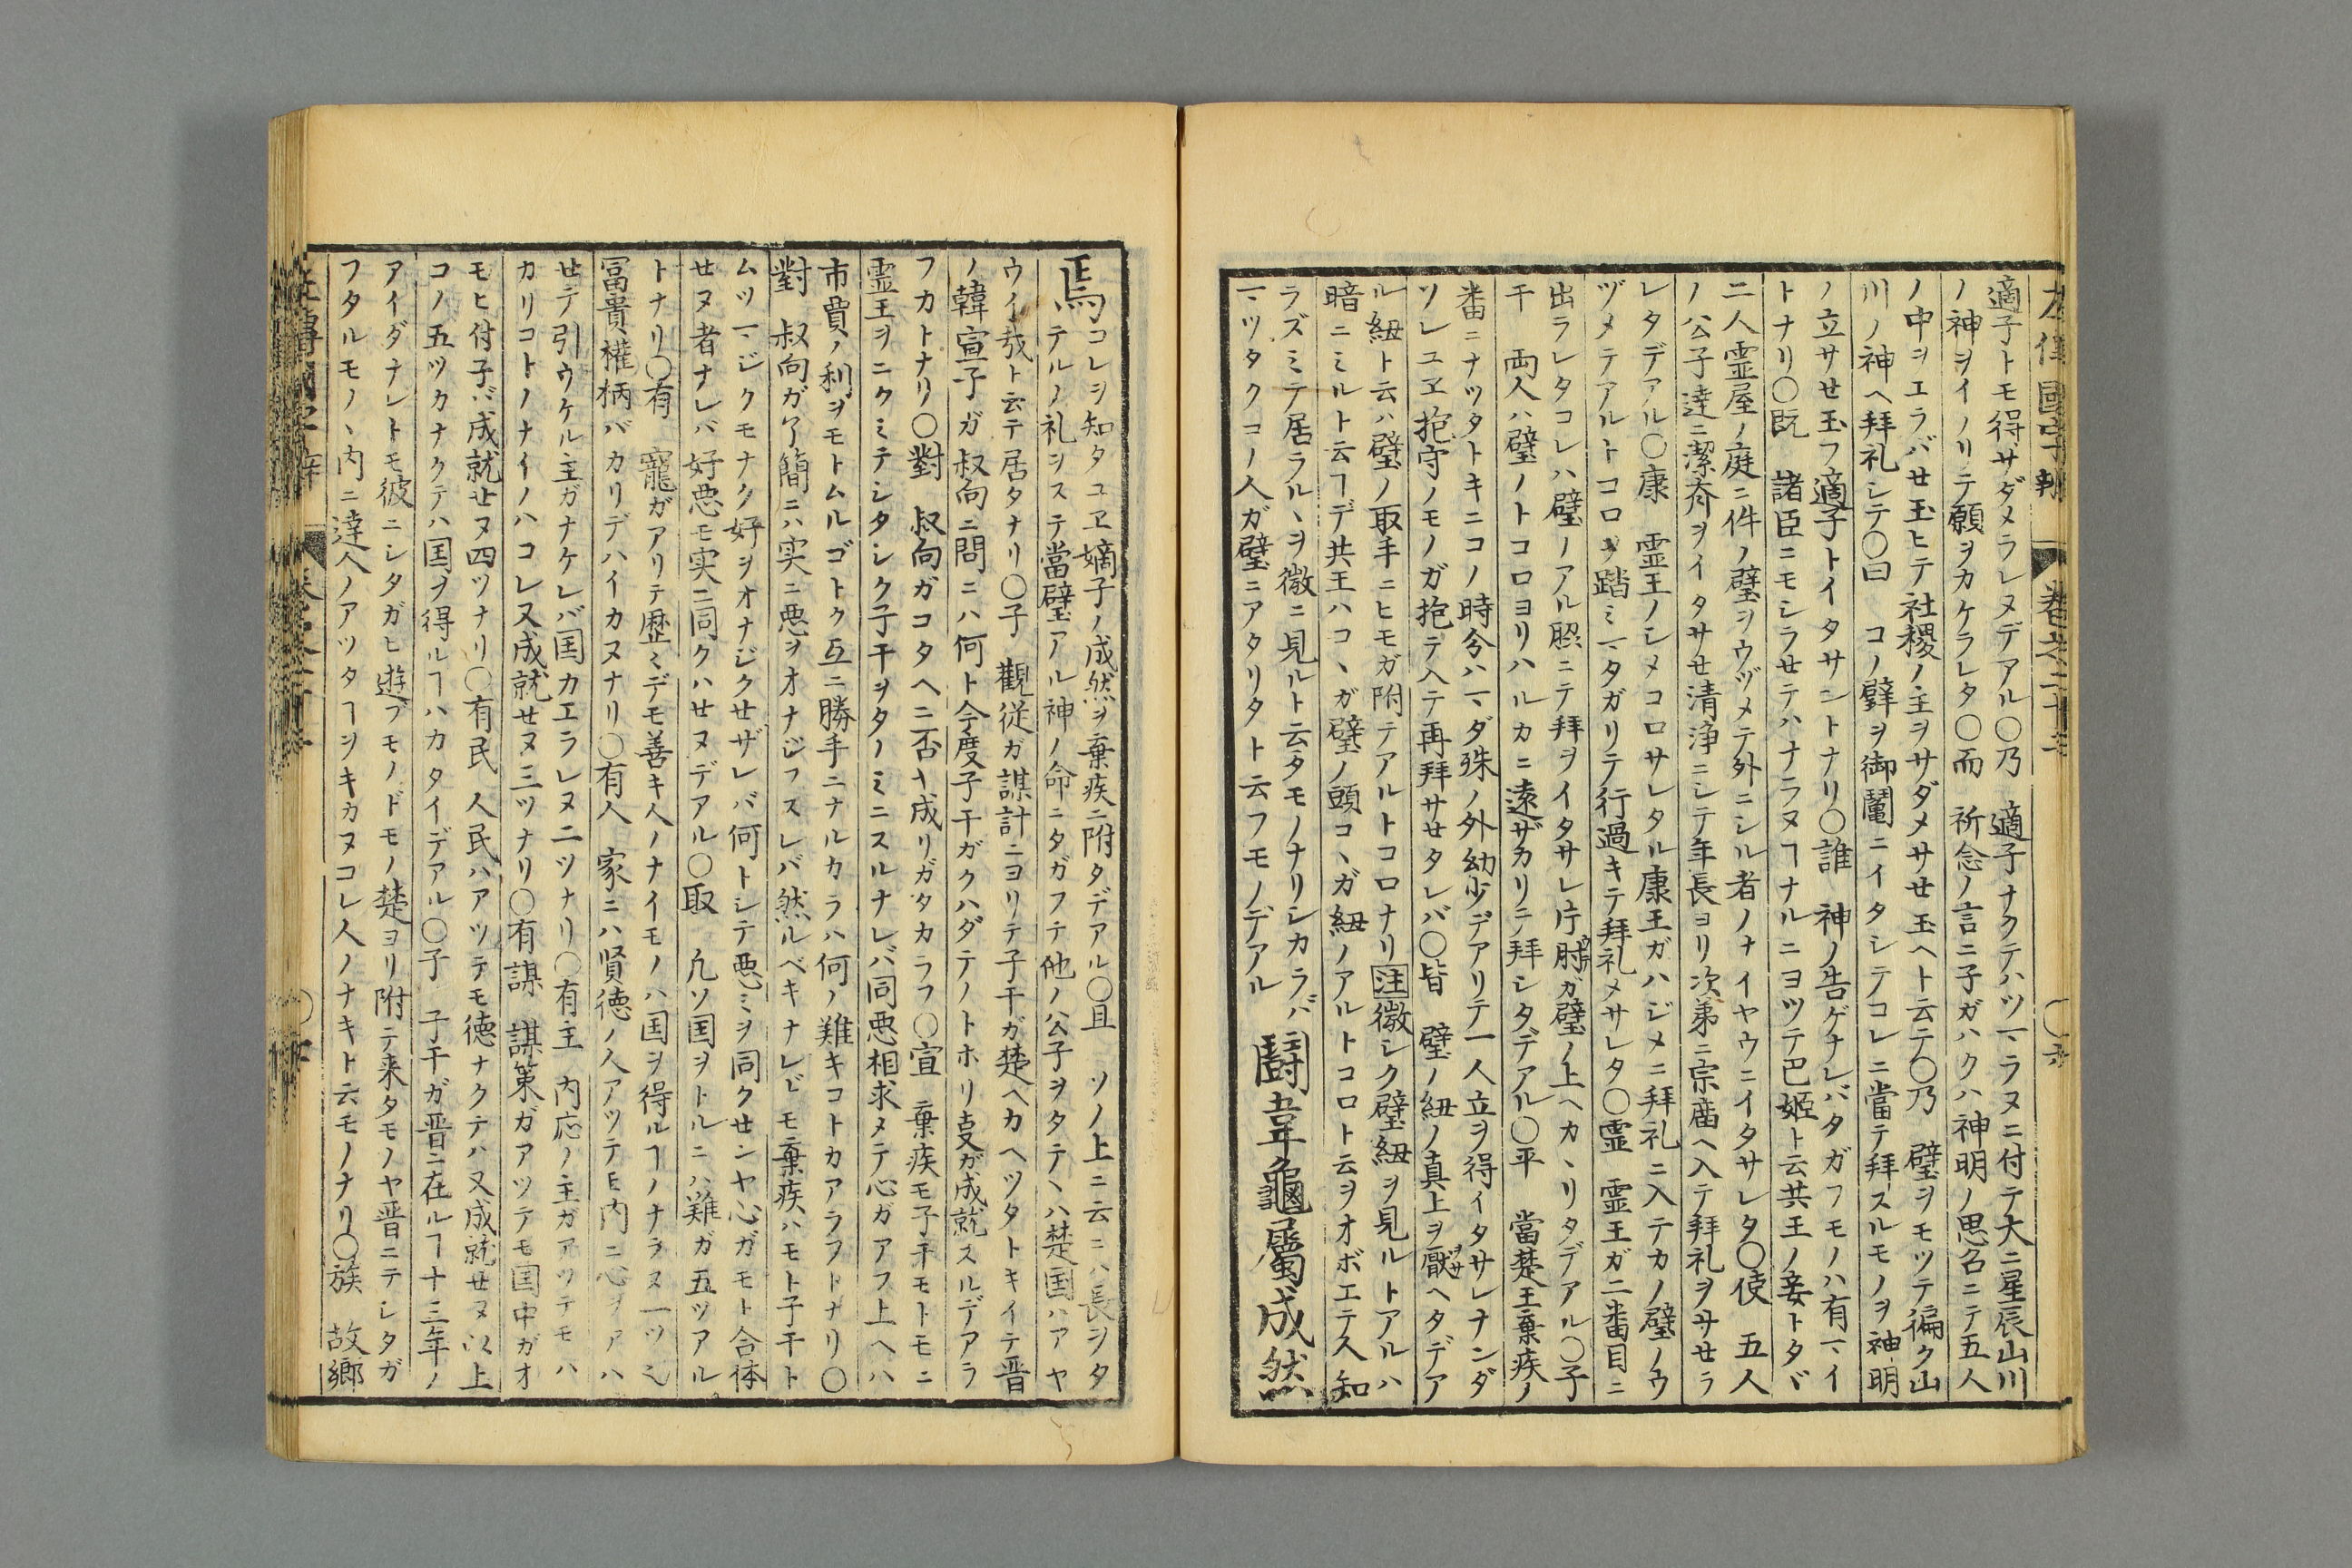 適子トモ得サダメラレヌデアル〇乃　適子ナクテハツヽラヌニ付テ大ニ星辰山川
ノ神ヲイノリテ願ヲカケラレタ〇而　祈念ノ言ニ子ガハクハ神明ノ思名ニテ五人
ノ中ヲエラバセ玉ヒテ社稷ノ主ヲサダメサせ玉ヘト云テ〇乃　璧ヲモツテ徧ク山
川ノ神ヘ拜礼シテ〇曰　コノ璧ヲ御鬮ニイタシテコレニ當テ拜スルモノヲ神明
ノ立サせ玉フ適子トイタサントナリ〇誰　神ノ告ゲナレバタガフモノハ有マイ
トナリ〇既　諸臣ニモシラせテハナラヌヿナルニヨツテ巴姬ト云共王ノ妾トタヾ
二人霊屋ノ庭ニ件ノ璧ヲウヅメテ外ニシル者ノナイヤウニイタサレタ〇使　五人
ノ公子達ニ潔斎ヲイタサせ清浄ニシテ年長ヨリ次第ニ宗庙ヘ入テ拜礼ヲサせラ
レタデアル〇康　霊王ノシメコロサレタル康王ガハジメニ拜礼ニ入テカノ璧ノウ
ヅメテアルトコロヲ踏ミマタガリテ行過キテ拜礼メサレタ〇霊　霊王ガ二番目ニ
出ラレタコレハ璧ノアル照ニテ拜ヲイタサレ片肘ガ璧ノ上ヘカヽリタデアル〇子
干　両人ハ璧ノトコロヨリハルカニ遠ザカリテ拜シタデアル〇平　當楚王棄疾ノ
番ニナツタトキニコノ時分ハマダ殊ノ外幼少デアリテ一人立ヲ得イタサレナンダ
ソレユヱ抱守ノモノガ抱テ入テ再拜サせタレバ〇皆　璧ノ紐ノ真上ヲ厭ヘタデア
ル紐ト云ハ璧ノ取手ニヒモガ附テアルトコロナリ注微シク璧紐ヲ見ルトアルハ
暗ニミルト云ヿデ共王ハコヽガ璧ノ頭コヽガ紐ノアルトコロト云ヲオボエテス知
ラズミテ居ラルヽヲ微ニ見ルト云タモノナリシカラバ　鬪韋龜屬成然
マツタクコノ人ガ璧ニアタリタト云フモノデアル
焉コレヲ知タユヱ嫡子ノ成然ヲ棄疾ニ附タデアル〇且　ソノ上ニ云ニハ長ヲタ
テルノ礼ヲステ當璧アル神ノ命ニタガフテ他ノ公子ヲタテヽハ楚国ハアヤ
ウイ哉ト云テ居タナリ〇子　觀從ガ謀計ニヨリテ子干ガ楚ヘカヘツタトキイテ晋
ノ韓宣子ガ叔向ニ問ニハ何ト今度子干ガクハダテノトホリ㕝ガ成就スルデアラ
フカトナリ〇對　叔向ガコタヘニ否ナ成リガタカラフ〇宣　棄疾モ子干モトモニ
霊王ヲニクミテシタシク子干ヲタノミニスルナレバ同悪相求メテ心ガアフ上ヘハ
市賈ノ利ヲモトムルゴトク互ニ勝手ニナルカラハ何ノ難キコトカアラフトナリ〇
對　叔向ガ了簡ニハ実ニ悪ヲオナジフスレバ然ルベキナレドモ棄疾ハモト子干ト
ムツマジクモナク好ヲオナジクせザレバ何トシテ悪ミヲ同クせンヤ心ガモト合体
せヌ者ナレバ好悪モ実ニ同クハせヌデアル〇取　凡ソ国ヲトルニハ難ガ五ツアル
トナリ〇有　寵ガアリテ歴ミデモ善キ人ノナイモノハ国ヲ得ルヿノナラヌ一ツ也
冨貴権柄バカリデハイカヌナリ〇有人　家ニハ賢徳ノ人アツテモ内ニ心ヲアハ
せテ引ウケル主ガナケレバ国カエラレヌ二ツナリ〇有主　内応ノ主ガアツテモハ
カリコトノナイノハコレ又成就せヌ三ツナリ〇有謀　謀策ガアツテモ国中ガオ
モヒ付子バ成就せヌ四ツナリ〇有民　人民ハアツテモ徳ナクテハ又成就せヌ以上
コノ五ツカナクテハ国ヲ得ルヿハカタイデアル〇子　子干ガ晋ニ在ルヿ十三年ノ
アイダナレトモ彼ニシタガヒ遊フモノドモノ楚ヨリ附テ来タモノヤ晋ニテシタガ
フタルモノヽ内ニ達人ノアツタヿヲキカヌコレ人ノナキト云モノナリ〇族　故郷